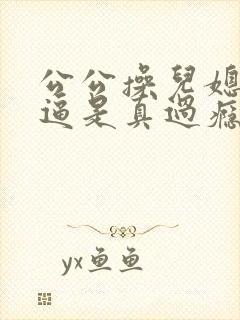 公公操兒媳
逼是真過癮
yx鱼鱼